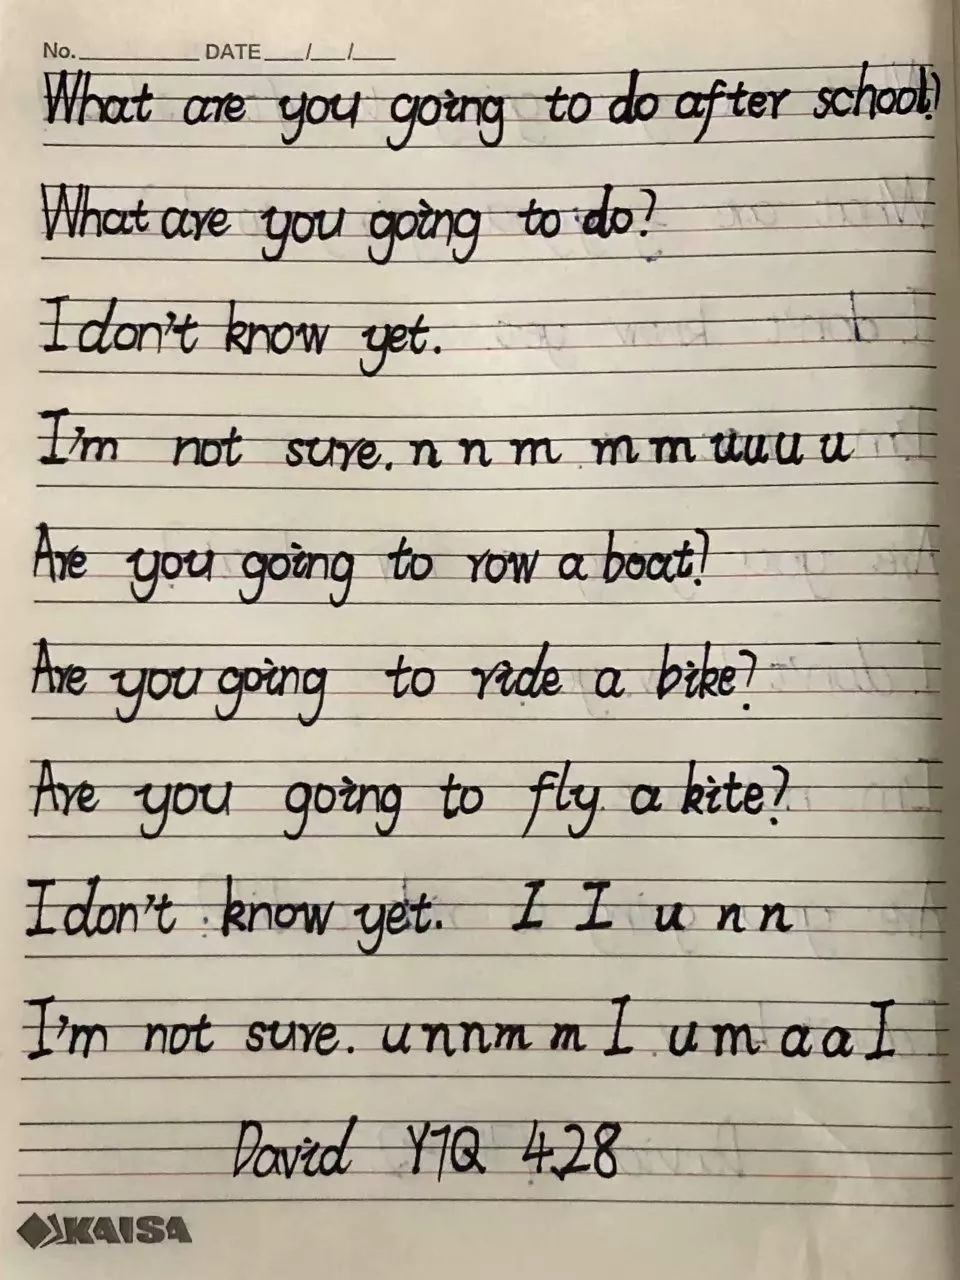 No. DATE / /
What are you going to do after school?
What are you going to do?
I don't know yet.
I'm not sure. n n m m m u u u u
Are you going to row a boat?
Are you going to ride a bike?
Are you going to fly a kite?
I don't know yet. I I u n n
I'm not sure. u n n m m I u m a a I
David Y7Q 4.28
KAISA